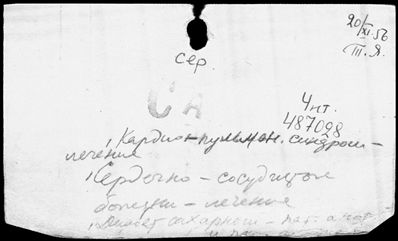 20/XI.56
III. Я.
сер.
Са
Чнт.
487028
1, Кардио-пульмон. синдром -
лечение
1, Сердечно - сосудистые
болезни - лечение
1, Диабет сахарный - пат. анат.
и пат.